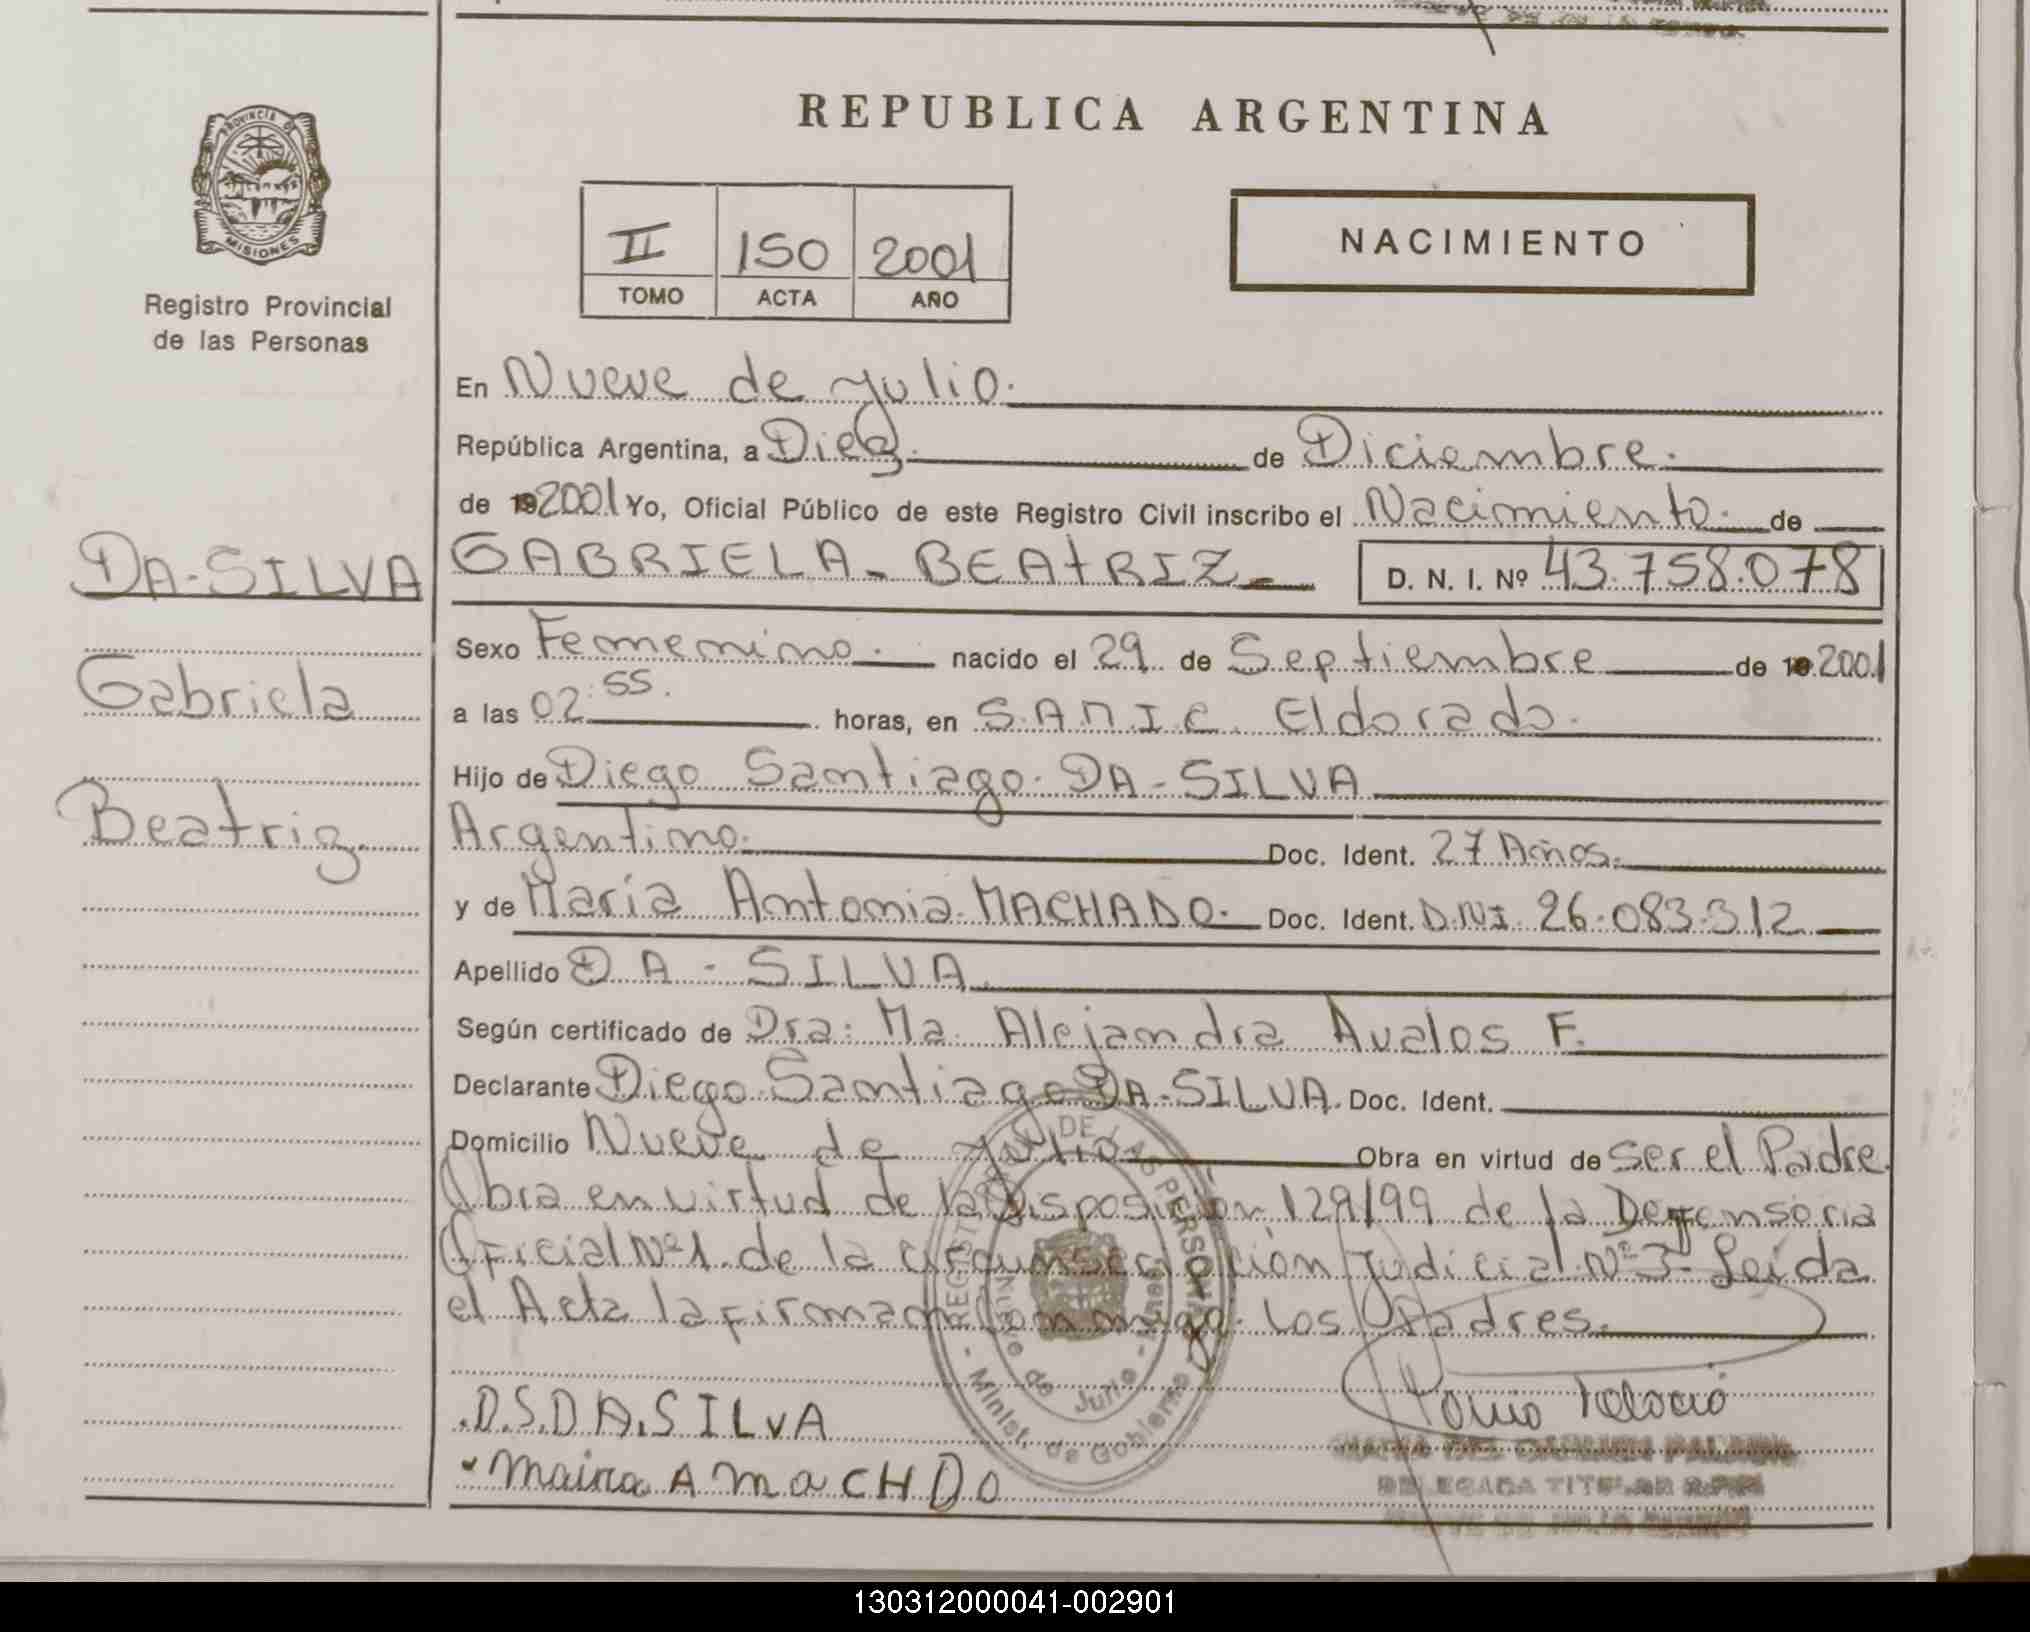 REPUBLICA ARGENTINA
PROVINCIA DE
MISIONES
Registro Provincial
de las Personas
II 150 2001
TOMO ACTA AÑO
NACIMIENTO
En Nueve de Julio.
República Argentina, a Diez. de Diciembre.
de 19 2001 Yo, Oficial Público de este Registro Civil inscribo el Nacimiento. de
DA-SILVA
Gabriela
Beatriz.
GABRIELA - BEATRIZ - D. N. I. Nº 43.758.078
Sexo Femenino. nacido el 29 de Septiembre de 19 2001
a las 02:55. horas, en S.A.M.I.C. Eldorado.
Hijo de Diego Santiago. DA-SILVA
Argentino. Doc. Ident. 27 Años.
y de María Antonia MACHADO. Doc. Ident. D.N.I. 26.083.312
Apellido DA-SILVA.
Según certificado de Dra: Ma. Alejandra Avalos F.
Declarante Diego Santiago DA-SILVA. Doc. Ident.
Domicilio Nueve de Julio Obra en virtud de ser el Padre.
Obra en virtud de la Disposición 129/99 de la Defensoria
Oficial Nº 1. de la circunscripción Judicial Nº 3. Leída
el Acta la firman conmigo. Los Padres.
D.S.DA.SILVA
maira A maCHDO
REGISTRO DE LAS PERSONAS
Nueve de Julio - Mnes.
- Minist. de Gobierno
DELEGADA TITULAR
130312000041-002901